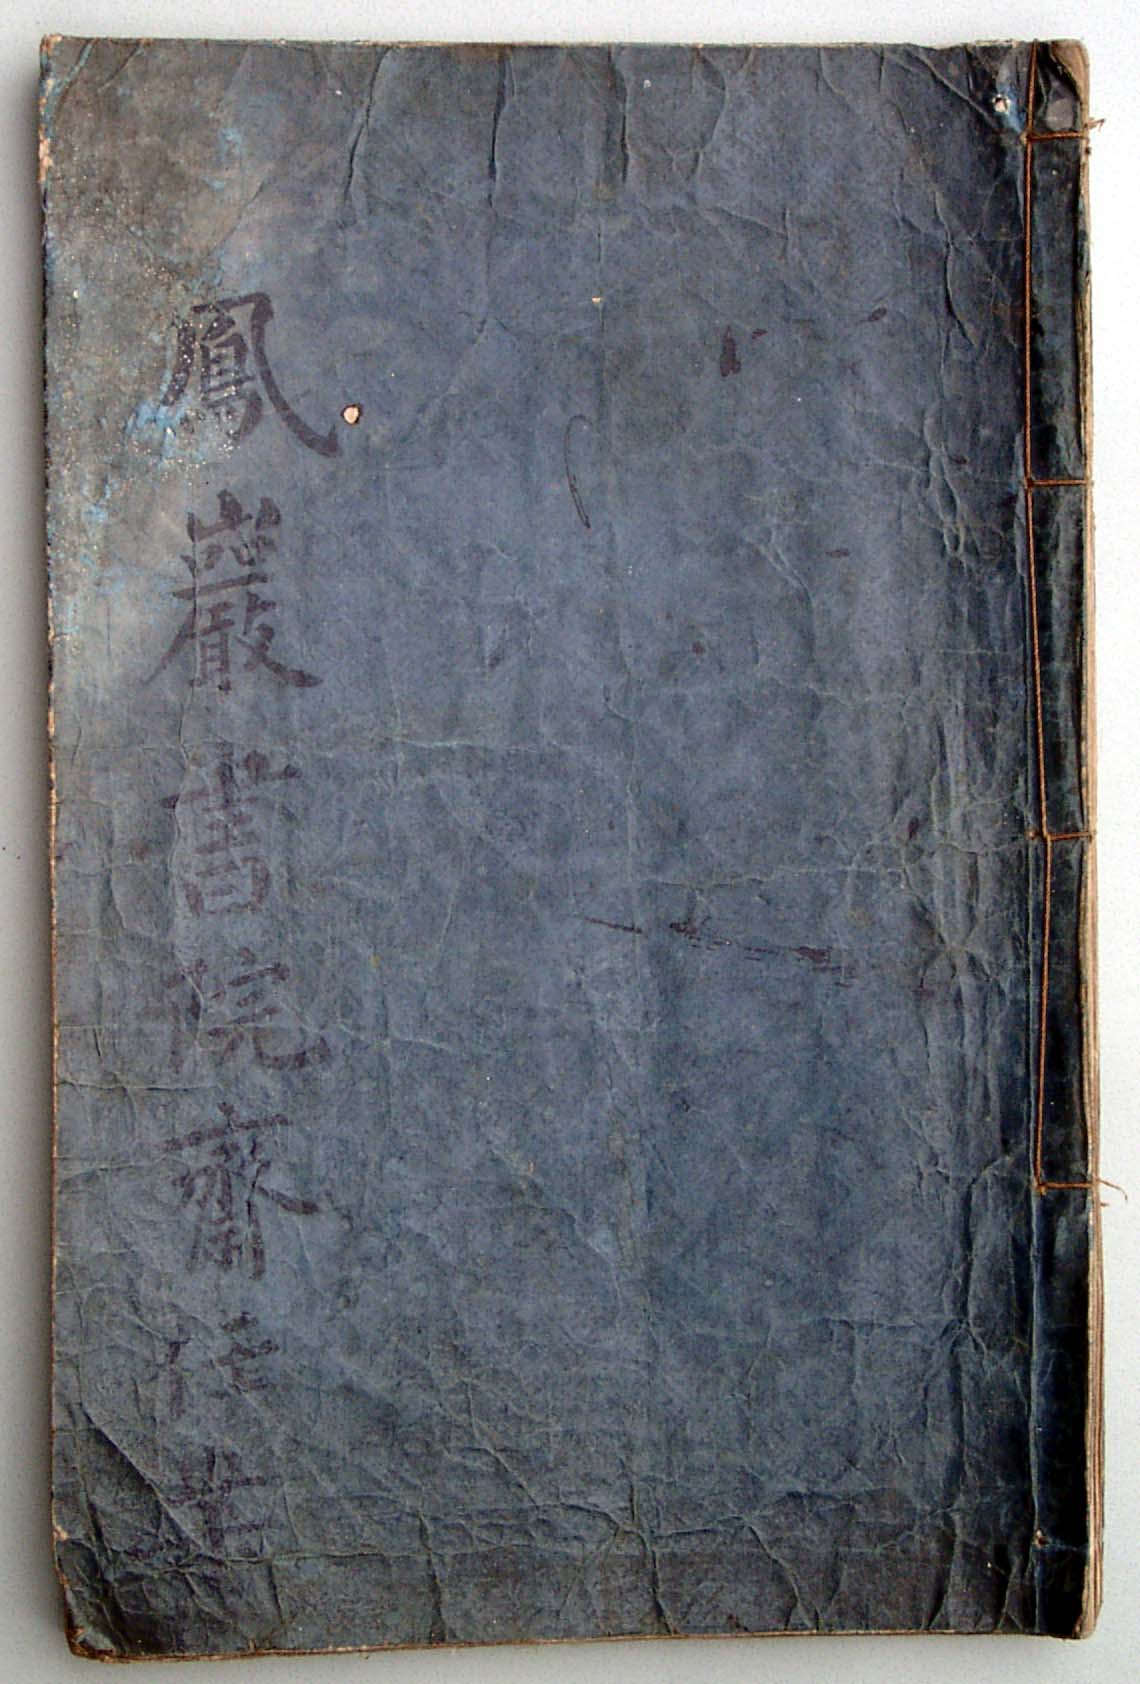 鳳巖書院齋任